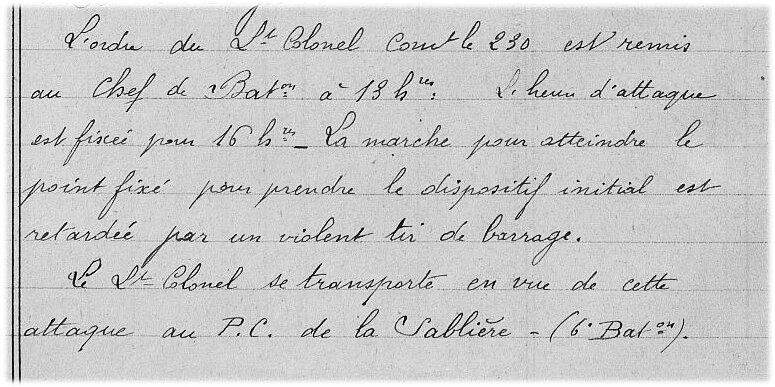 L'ordre du Lt Colonel Comt le 230 est remis
au Chef de Baton à 13 hres. L'heure d'attaque
est fixée pour 16 hres – La marche pour atteindre le
point fixé pour prendre le dispositif initial est
retardée par un violent tir de barrage.
Le Lt Colonel se transporte en vue de cette
attaque au P.C. de la Sablière – (6e Baton).